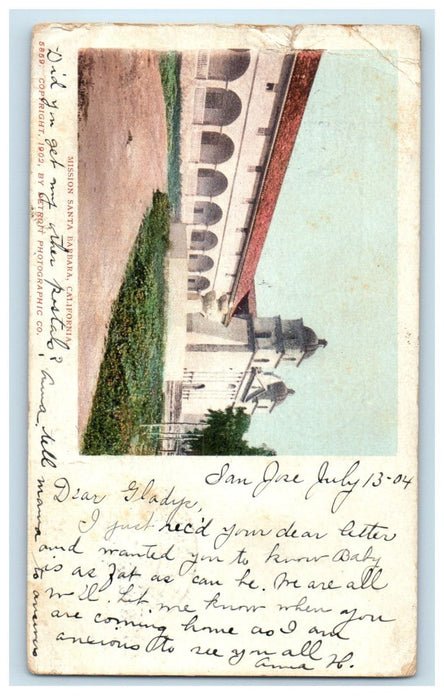 MISSION SANTA BARBARA, CALIFORNIA.
5859. COPYRIGHT, 1902, BY DETROIT PHOTOGRAPHIC CO.
San Jose July 13-04
Dear Gladys,
I just rec'd your dear letter
and wanted you to know Baby
is as fat as can be. We are all
well. Let me know when you
are coming home as I am
anxious to see you all
Anna H.
Did you get my other postals? Anna, tell mama
to answer